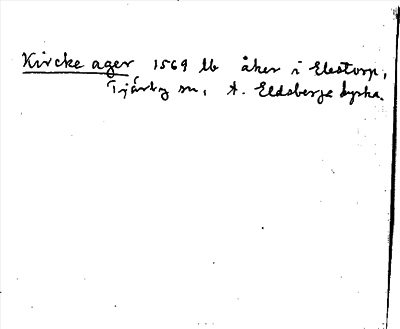 Kircke ager 1569 lb åker i Elestorp,
Tjärby sn, t. Eldsberga kyrka.